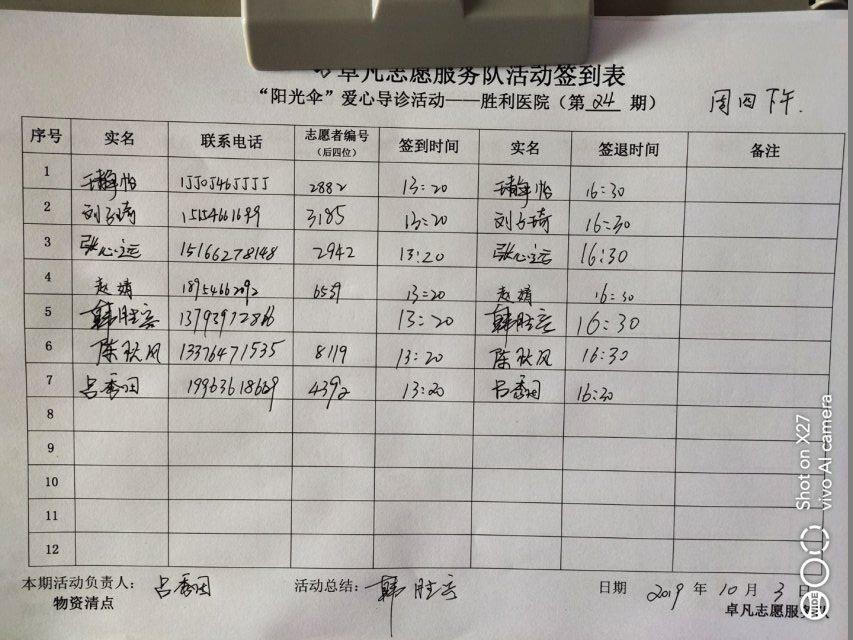 卓凡志愿服务队活动签到表
“阳光伞”爱心导诊活动——胜利医院（第 24 期） 周四下午.
序号 实名 联系电话 志愿者编号（后四位） 签到时间 实名 签退时间 备注
1 2882 13:20 16:30
2 3185 13:20 16:30
3 张心远 15166278148 2942 13:20 张心远 16:30
4 赵婧 6539 13:20 赵婧 16:30
5 韩胜 13:20 韩胜 16:30
6 陈秋风 13376471535 8119 13:20 陈秋风 16:30
7 吕秀田 4392 13:20 吕秀田 16:30
8
9
10
11
12
本期活动负责人： 吕秀田 活动总结： 韩胜 日期 2019 年 10 月 3 日
物资清点 卓凡志愿服务队
Shot on X27
vivo AI camera